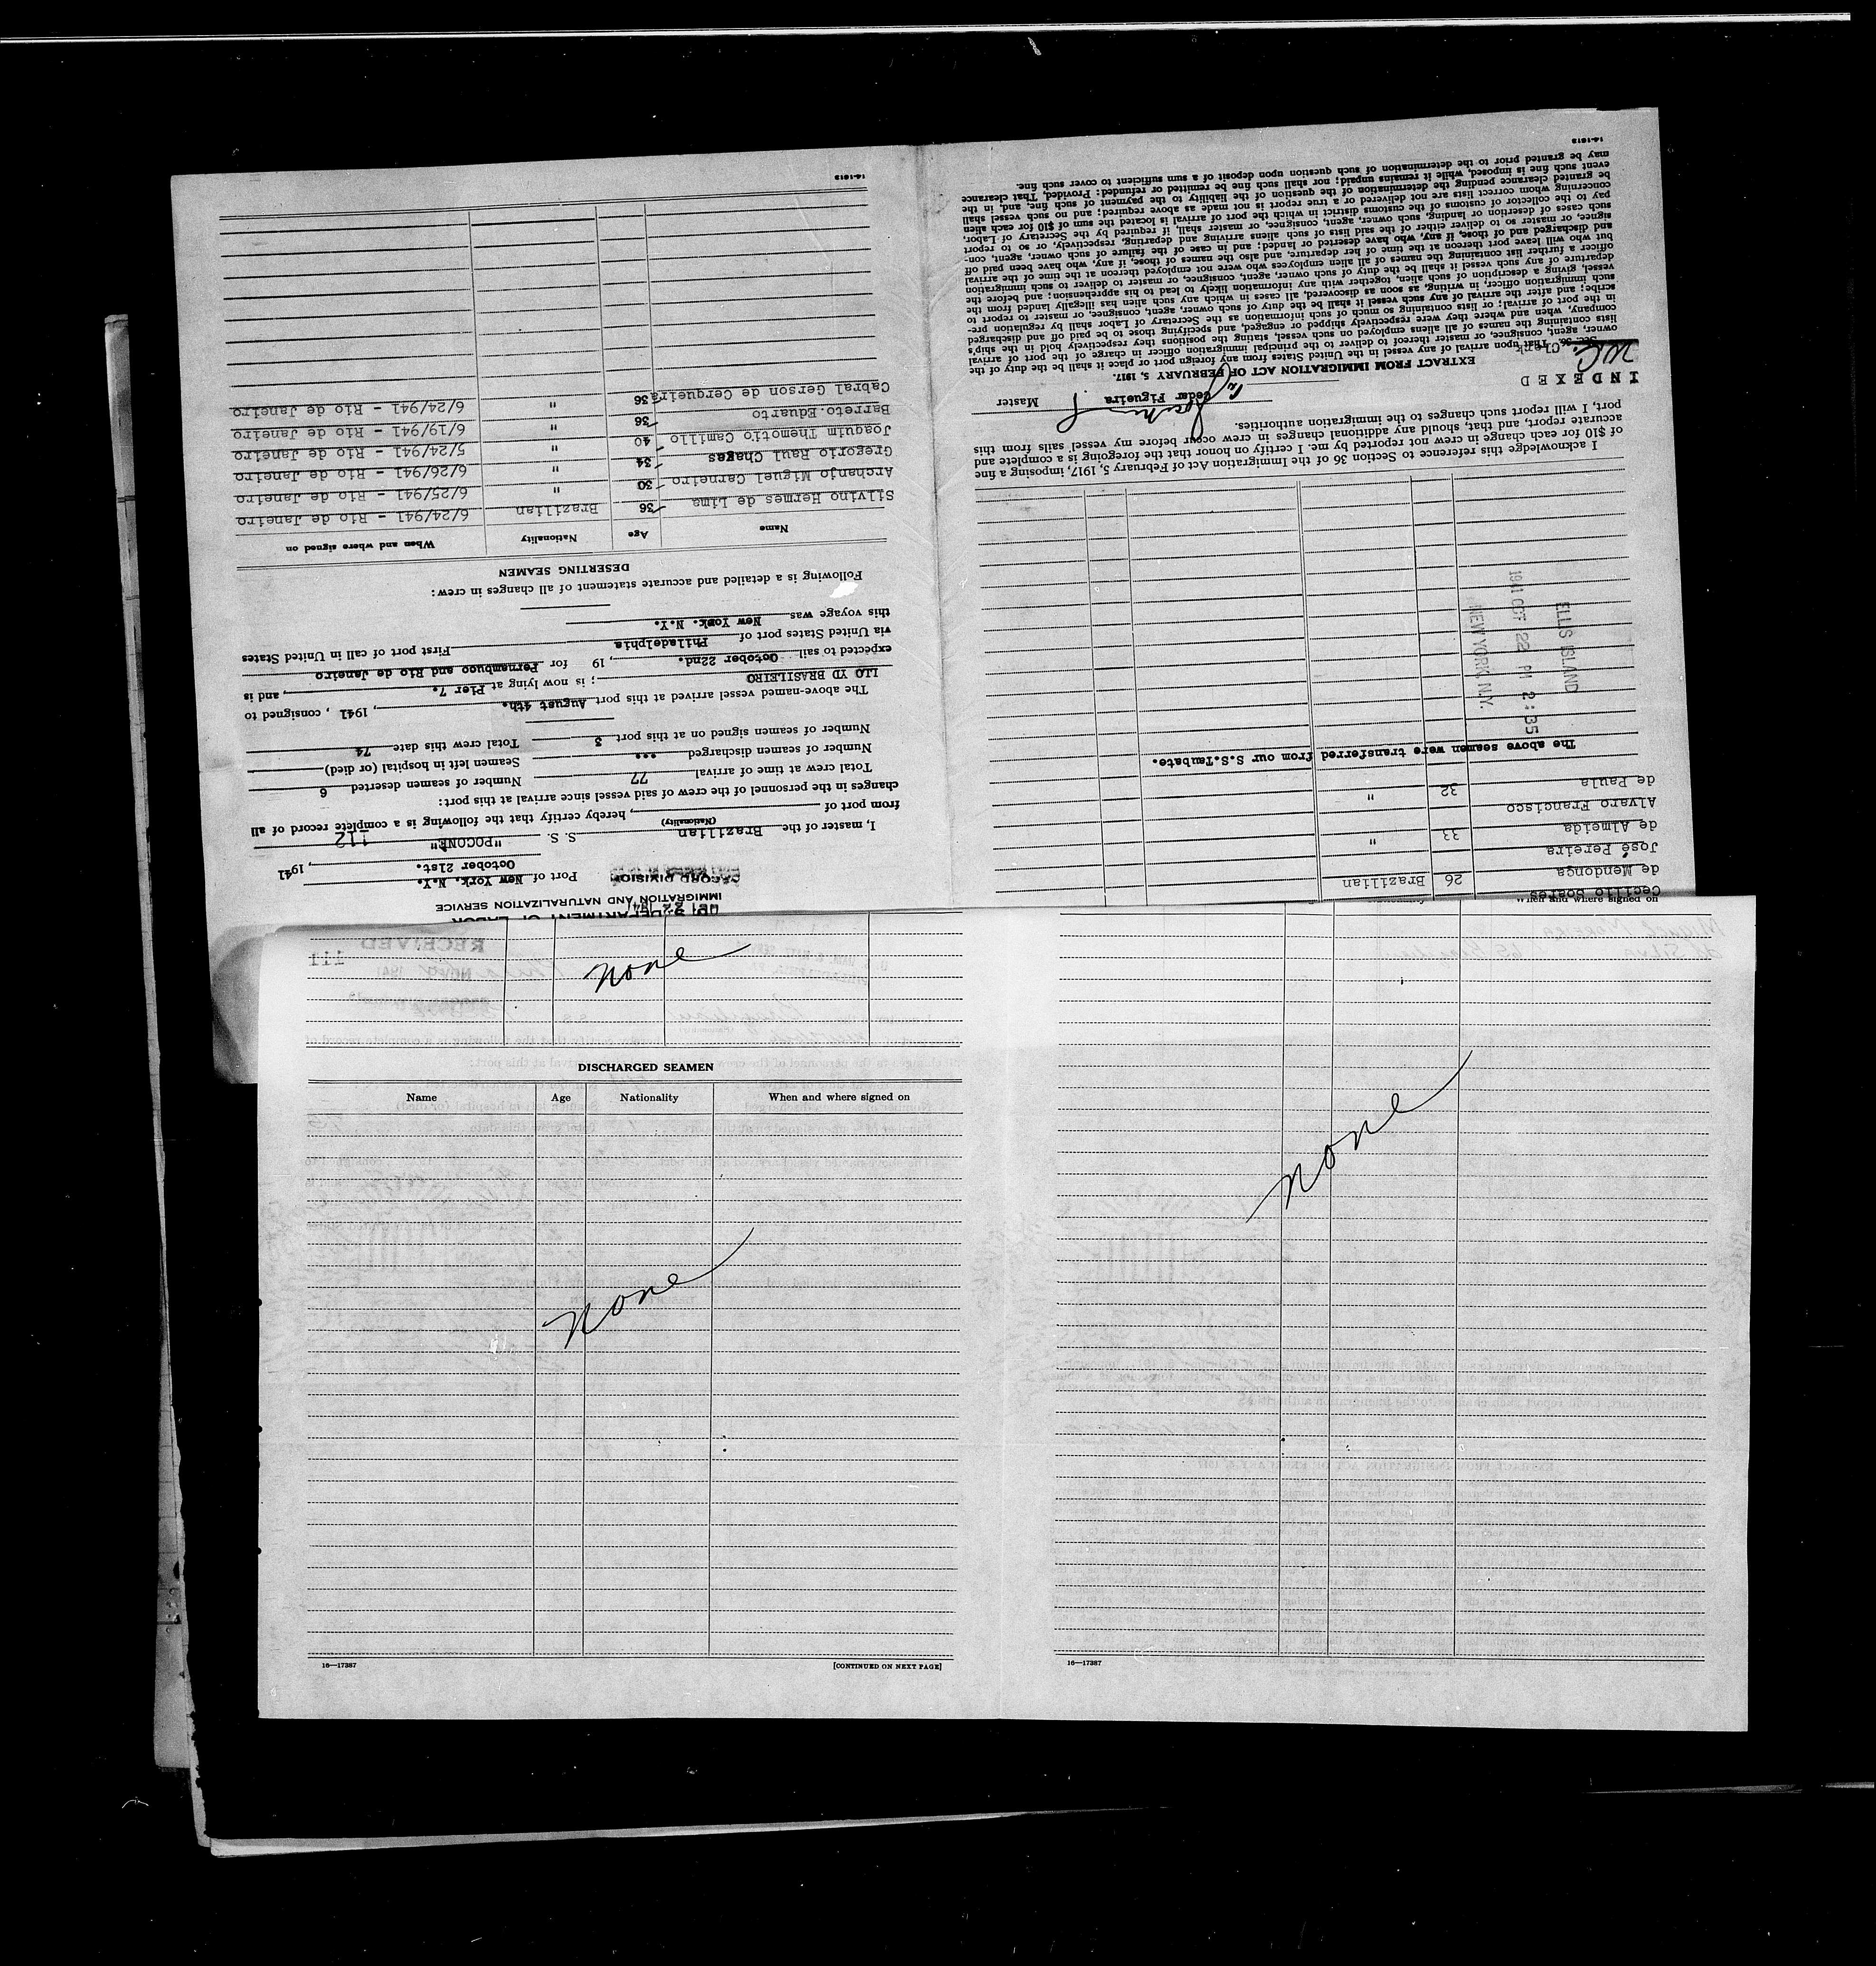 U. S. DEPARTMENT OF LABOR
IMMIGRATION AND NATURALIZATION SERVICE
OCT 22 1941
RECORD DIVISION
Port of New York. N.Y.
October 21st. , 1941
I, master of the Brazilian S. S. "POCONE" 112
(Nationality)
from port of , hereby certify that the following is a complete record of all
changes in the personnel of the crew of said vessel since arrival at this port:
Total crew at time of arrival 77 Number of seamen deserted 6
Number of seamen discharged ... Seamen left in hospital (or died)
Number of seamen signed on at this port 3 Total crew this date 74
The above-named vessel arrived at this port August 4th. , 1941 , consigned to
LLO YD BRASILEIRO ; is now lying at Pier 7. , and is
expected to sail October 22nd. , 19 for Pernambuco and Rio de Janeiro
via United States port of Philadelphia First port of call in United States
this voyage was New York. N.Y.
Following is a detailed and accurate statement of all changes in crew:
DESERTING SEAMEN
Name Age Nationality When and where signed on
Silvino Hermes de Lima 36 Brazilian 6/24/941 - Rio de Janeiro
Archanjo Miguel Carneiro 30 " 6/25/941 - Rio de Janeiro
Gregorio Raul Chages 34 " 6/26/941 - Rio de Janeiro
Joaquim Themotio Camillo 40 " 5/24/941 - Rio de Janeiro
Barreto.Eduarto 36 " 6/19/941 - Rio de Janeiro
Cabral Gerson de Cerqueira 36 " 6/24/941 - Rio de Janeiro
14-1613
When and where signed on
Cecilio Soares
de Mendonça 26 Brazilian
José Pereira
de Almeida 33 "
Alvaro Francisco
de Paula 32 "
The above seamen were transferred from our S.S.Taubate.
ELLIS ISLAND
1941 OCT 22 PM 2:35
NEW YORK, N.Y.
I acknowledge this reference to Section 36 of the Immigration Act of February 5, 1917, imposing a fine
of $10 for each change in crew not reported by me. I certify on honor that the foregoing is a complete and
accurate report, and that, should any additional changes in crew occur before my vessel sails from this
port, I will report such changes to the immigration authorities.
Cedar Figueira Master
INDEXED
Clerk
EXTRACT FROM IMMIGRATION ACT OF FEBRUARY 5, 1917.
Sec. 36. That upon arrival of any vessel in the United States from any foreign port or place it shall be the duty of the
owner, agent, consignee, or master thereof to deliver to the principal immigration officer in charge of the port of arrival
lists containing the names of all aliens employed on such vessel, stating the positions they respectively hold in the ship's
company, when and where they were respectively shipped or engaged, and specifying those to be paid off and discharged
in the port of arrival; or lists containing so much of such information as the Secretary of Labor shall by regulation pre-
scribe; and after the arrival of any such vessel it shall be the duty of such owner, agent, consignee, or master to report to
such immigration officer, in writing, as soon as discovered, all cases in which any such alien has illegally landed from the
vessel, giving a description of such alien, together with any information likely to lead to his apprehension; and before the
departure of any such vessel it shall be the duty of such owner, agent, consignee, or master to deliver to such immigration
officer a further list containing the names of all alien employees who were not employed thereon at the time of the arrival
but who will leave port thereon at the time of her departure, and also the names of those, if any, who have been paid off
and discharged and of those, if any, who have deserted or landed; and in case of the failure of such owner, agent, con-
signee, or master so to deliver either of the said lists of such aliens arriving and departing, respectively, or so to report
such cases of desertion or landing, such owner, agent, consignee, or master shall, if required by the Secretary of Labor,
pay to the collector of customs of the customs district in which the port of arrival is located the sum of $10 for each alien
concerning whom correct lists are not delivered or a true report is not made as above required; and no such vessel shall
be granted clearance pending the determination of the question of the liability to the payment of such fine, and, in the
event such fine is imposed, while it remains unpaid; nor shall such fine be remitted or refunded: Provided, That clearance
may be granted prior to the determination of such question upon deposit of a sum sufficient to cover such fine.
14-1613
RECEIVED
111
none
DISCHARGED SEAMEN
Name Age Nationality When and where signed on
none
16—17387 [CONTINUED ON NEXT PAGE]
none
16—17387